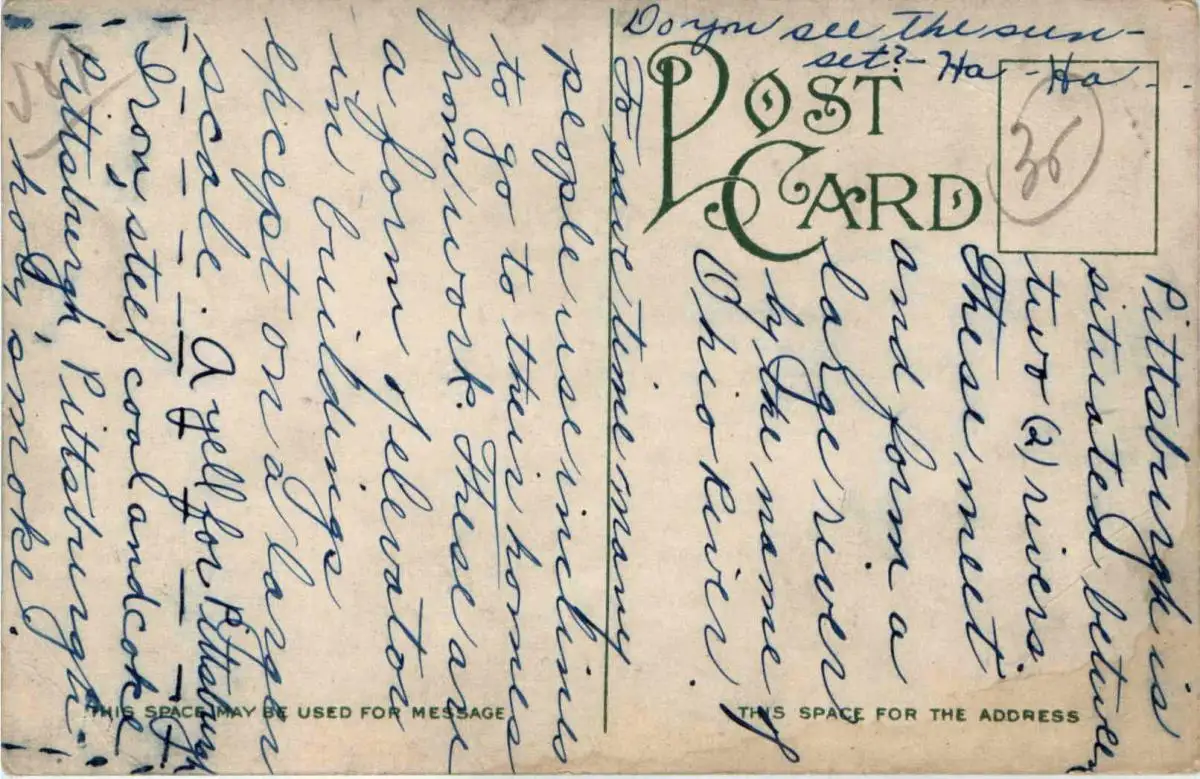 Do you see the sun-
set?- Ha - Ha - . .
POST
CARD
36
Pittsburgh is
situated between
two (2) rivers.
These meet
and form a
large river
by the name of
Ohio River.
To save time many
people use inclines
to go to their homes
from work. These are
a form of elevator
in buildings
except on a larger
scale. A yell for Pittsburgh
Iron, steel, coal and coke
Pittsburgh, Pittsburgh
holy smoke!
THIS SPACE MAY BE USED FOR MESSAGE
THIS SPACE FOR THE ADDRESS